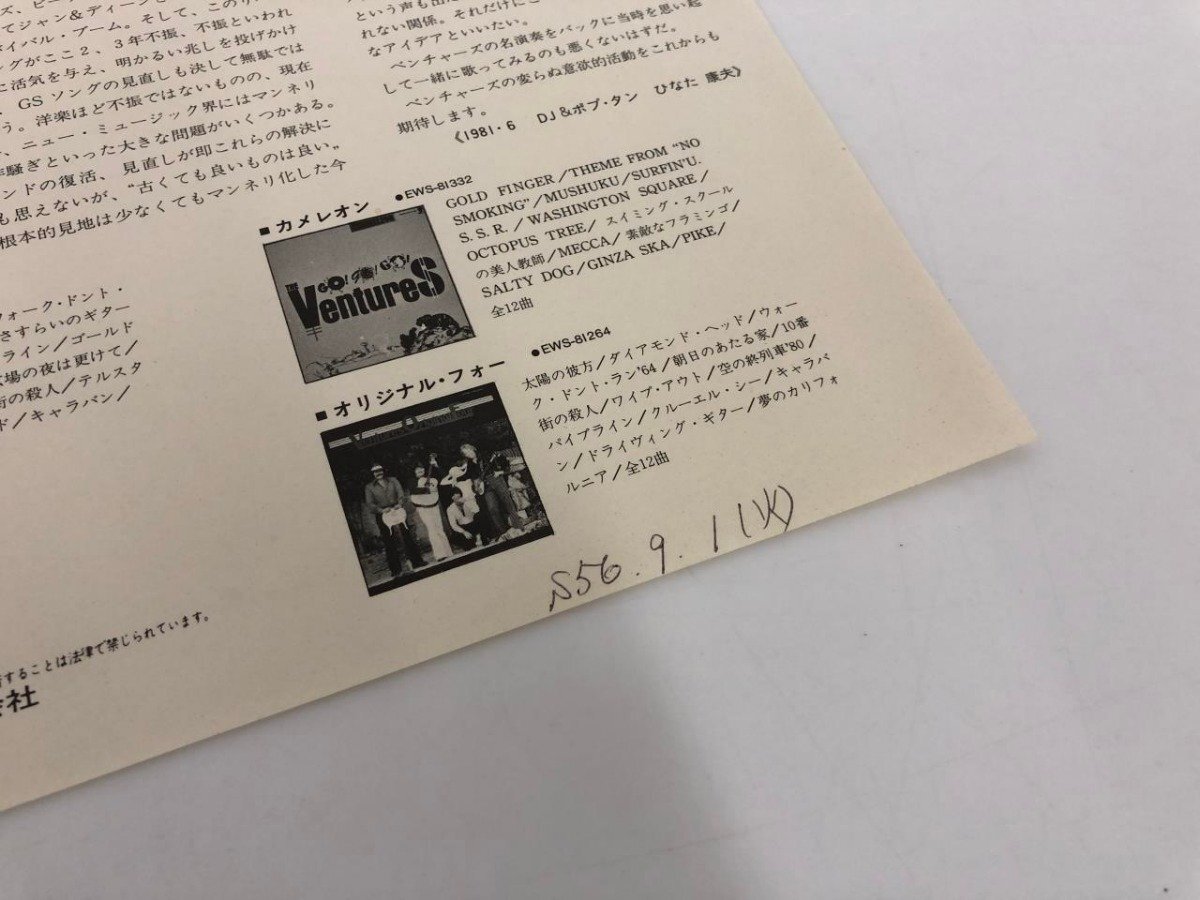 ズ、ビー
てジャン&ディーン
イバル・ブーム。そして、このリ
ングがここ2、3年不振、不振といわれ
に活気を与え、明かるい兆しを投げかけ
GSソングの見直しも決して無駄では
う。洋楽ほど不振ではないものの、現在
、ニュー・ミュージック界にはマンネリ
騒ぎといった大きな問題がいくつかある。
ンドの復活、見直しが即これらの解決に
も思えないが、"古くても良いものは良い"
根本的見地は少なくてもマンネリ化した今
という声も出
れない関係。それだけに
なアイデアといいたい。
ベンチャーズの名演奏をバックに当時を思い起
して一緒に歌ってみるのも悪くないはずだ。
ベンチャーズの変らぬ意欲的活動をこれからも
期待します。
《1981・6 DJ&ポプ・タン ひなた 康夫》
■カメレオン ●EWS-81332
GO! 
THE VentureS
GOLD FINGER/THEME FROM "NO
SMOKING"/MUSHUKU/SURFIN'U.
S.S.R./WASHINGTON SQUARE/
OCTOPUS TREE/スイミング・スクール
の美人教師/MECCA/素敵なフラミンゴ/
SALTY DOG/GINZA SKA/PIKE/
全12曲
■オリジナル・フォー ●EWS-81264
太陽の彼方/ダイアモンド・ヘッド/ウォー
ク・ドント・ラン'64/朝日のあたる家/10番
街の殺人/ワイプ・アウト/空の終列車'80/
パイプライン/クルーエル・シー/キャラバ
ン/ドライヴィング・ギター/夢のカリフォ
ルニア/全12曲
ウォーク・ドント・
さすらいのギター
ライン/ゴールド
広場の夜は更けて/
街の殺人/テルスタ
ド/キャラバン/
S56.9.1(火)
することは法律で禁じられています。
会社